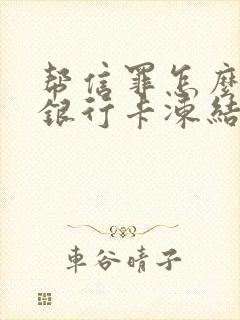 帮信罪怎麼
銀行卡凍結
車谷晴子